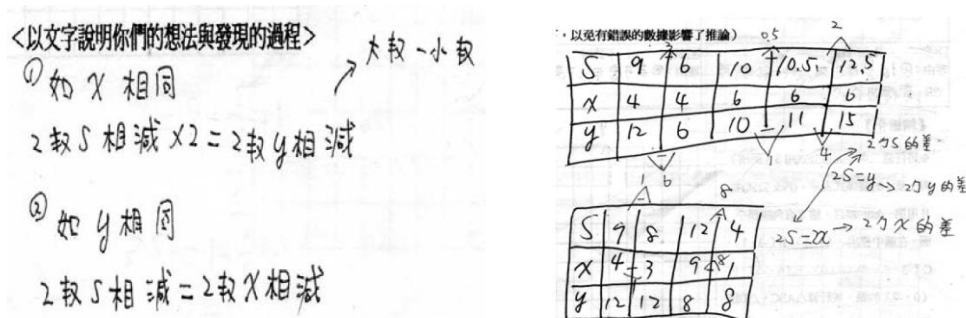 <以文字說明你們的想法與發現的過程>
① 如 x 相同
大數-小數
2數S相減×2=2數y相減
② 如 y 相同
2數S相減=2數x相減
，以免有錯誤的數據影響了推論）
3 0.5 2
S 9 6 10 10.5 12.5
x 4 4 6 6 6
y 12 6 10 11 15
6 1 4
2個S的差
2S=y → 2個y的差
2S=2x → 2個x的差
1 8
S 9 8 12 4
x 4 3 9 1
y 12 12 8 8